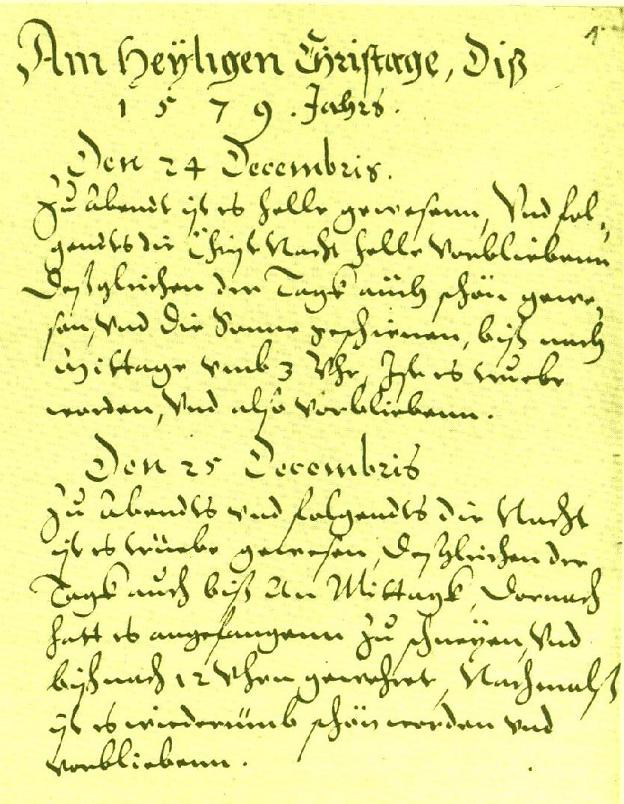 1
Am Heÿligen Christage, Diß
1 5 7 9 . Jahrs.
Den 24 Decembris.
Zu Abendt ist es helle gewesenn, Vnd fol,
gendts die Christ Nacht helle vorbliebenn
Deßgleichen der Tagk auch schön gewe,
sen, Vnd die Sonne geschienen, biß nach
Mittage vmb 3 Vhr, Ist es truebe
worden, Vnd also vorbliebenn.
Den 25 Decembris
Zu Abendts vnd folgendts die Nacht
ist es trüebe gewesen, Deßgleichen der
Tagk auch biß An Mittagk, Dornach
hatt es angefangenn Zu schneyen, Vnd
biß nach 12 Vhrn gewehret, Nachmalß
ist es wiederümb schön worden vnd
vorbliebenn.